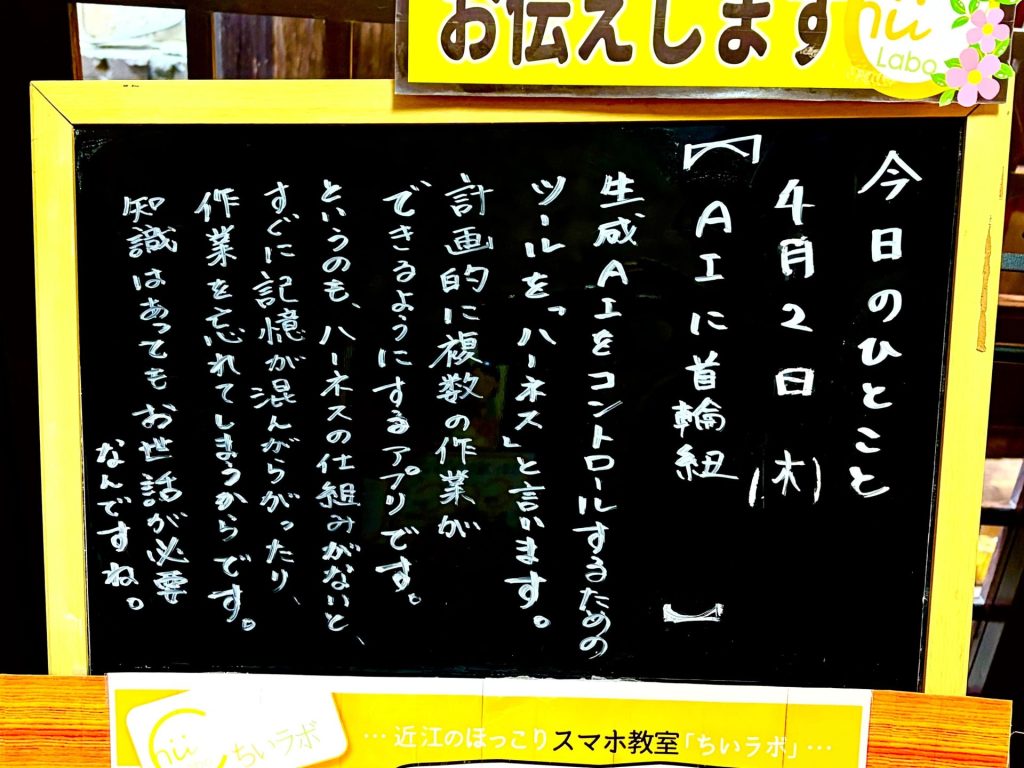 お伝えします
Chii
Labo
今日のひとこと
4月2日(木)
【AIに首輪紐】
生成AIをコントロールするための
ツールを「ハーネス」と言います。
計画的に複数の作業が
できるようにするアプリです。
というのも、ハーネスの仕組みがないと、
すぐに記憶が混んがらがったり、
作業を忘れてしまうからです。
知識はあってもお世話が必要
なんですね。
ちいラボ
…近江のほっこりスマホ教室「ちいラボ」…